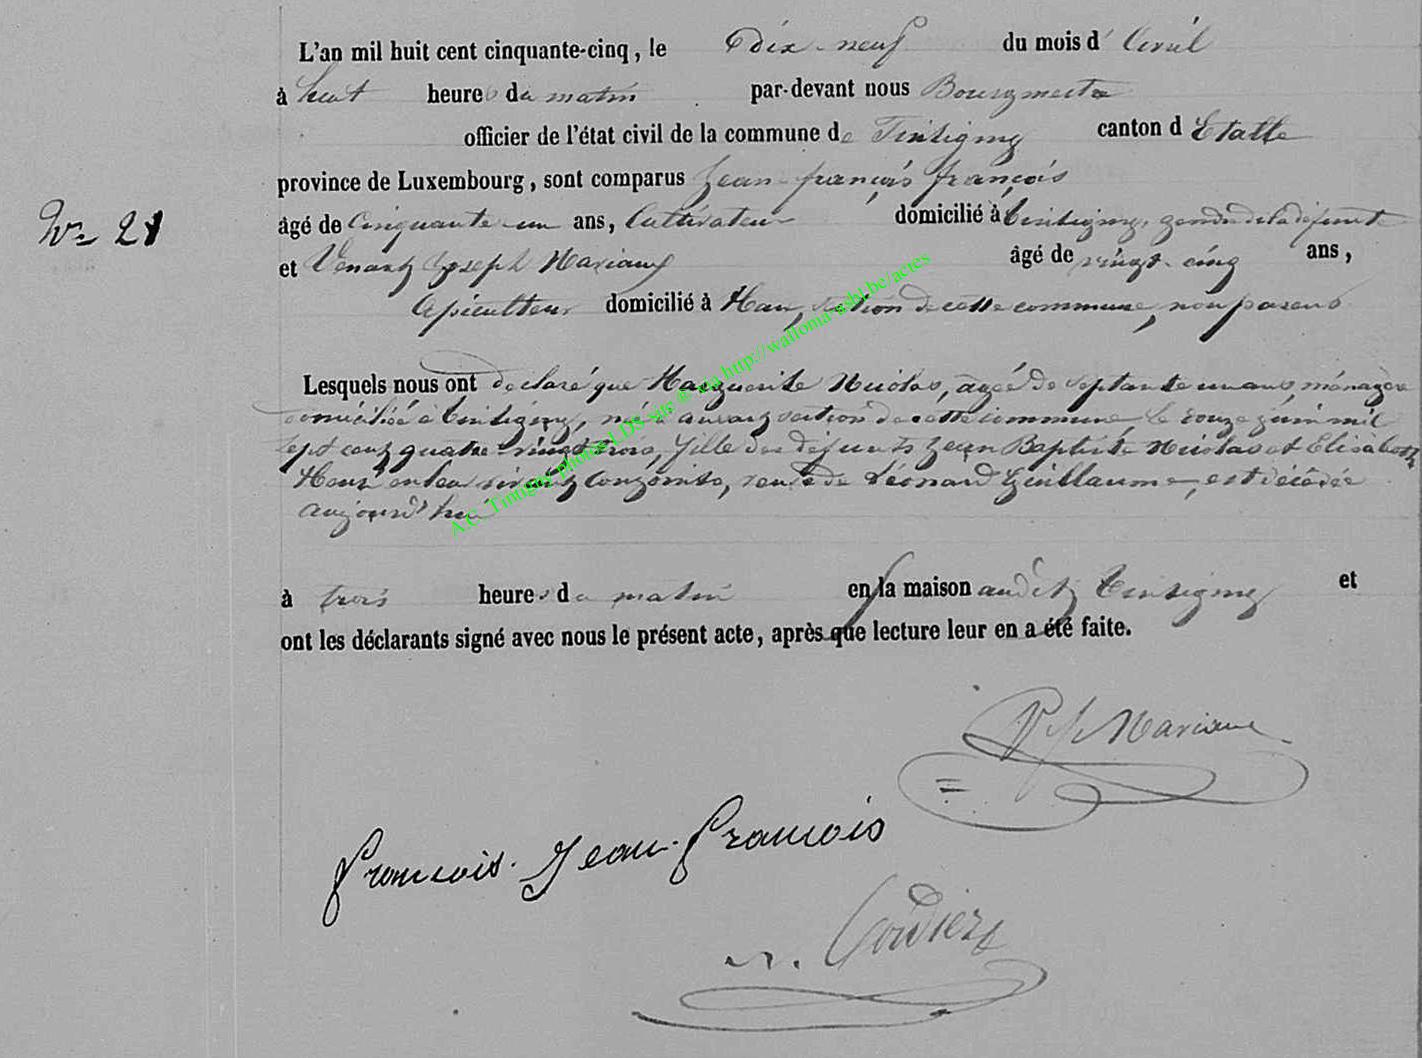 L'an mil huit cent cinquante-cinq, le dix-neuf du mois d'Avril
à huit heures du matin par-devant nous Bourgmestre
officier de l'état civil de la commune de Tintigny canton d Etalle
province de Luxembourg, sont comparus Jean-françois françois
N° 21
âgé de cinquante-un ans, Cultivateur domicilié à Tintigny, gendre de la défunte
et Venant Joseph Mariaux âgé de vingt-cinq ans,
Apiculteur domicilié à Han, section de cette commune, non parens
Lesquels nous ont déclaré que Marguerite Nicolas, âgée de septante un ans, ménagère
domiciliée à Tintigny, née à ansart section de cette commune, le onze juin mil
sept cent quatre vingt trois, fille des défunts Jean Baptiste Nicolas et Elisabeth
en leur vivant conjoints, veuve de Léonard Guillaume, est décédée
aujourd'hui
à trois heures du matin en sa maison audit Tintigny et
ont les déclarants signé avec nous le présent acte, après que lecture leur en a été faite.
VJ Mariaux
françois. Jean-françois
A.C. Tintigny photos LDS-sas ® via http://wallonia-asbl.be/actes